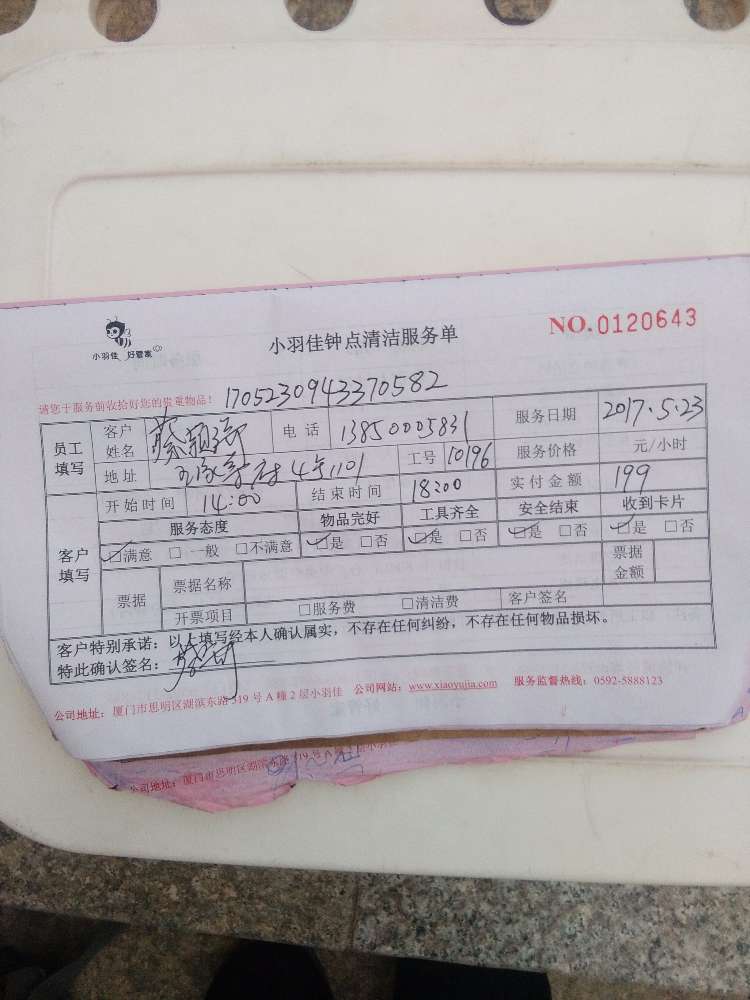 小羽佳 好管家
小羽佳钟点清洁服务单
NO.0120643
请您于服务前收拾好您的贵重物品！ 1705230943370582
员工填写 客户姓名 蔡 电话 13850005831 服务日期 2017.5.23
地址 4号1101 工号 10196 服务价格 元/小时
客户填写 开始时间 14:00 结束时间 18:00 实付金额 199
服务态度 物品完好 工具齐全 安全结束 收到卡片
☑满意 □一般 □不满意 ☑是 □否 ☑是 □否 ☑是 □否 ☑是 □否
票据 票据名称 票据金额
开票项目 □服务费 □清洁费 客户签名
客户特别承诺：以上填写经本人确认属实，不存在任何纠纷，不存在任何物品损坏。
特此确认签名：
公司地址：厦门市思明区湖滨东路319号A幢2层小羽佳 公司网站：www.xiaoyujia.com 服务监督热线：0592-5888123
公司地址：厦门市思明区湖滨东路319号A幢2层小羽佳